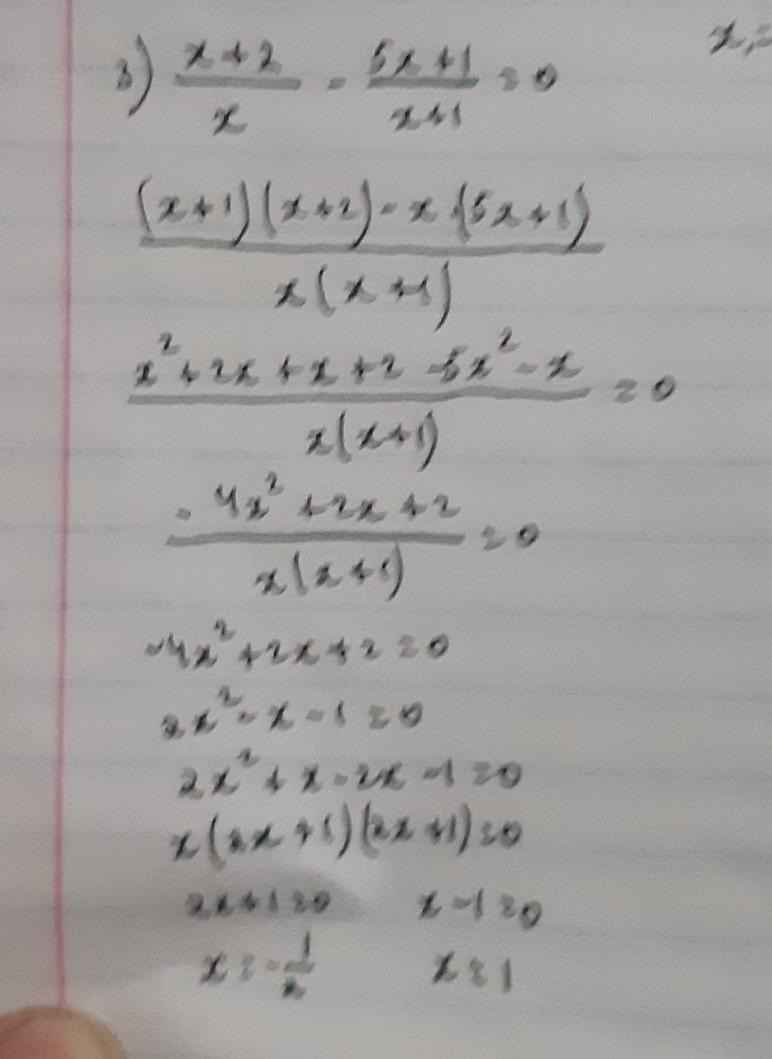 x₁=
3) (x+2)/x - (5x+1)/(x+1) = 0
((x+1)(x+2) - x·(5x+1))/(x(x+1))
(x²+2x+x+2-5x²-x)/(x(x+1)) = 0
(-4x²+2x+2)/(x(x+1)) = 0
-4x²+2x+2=0
2x²-x-1=0
2x²+x-2x-1=0
x(2x+1)(2x+1)=0
2x+1=0 x-1=0
x=-1/2 x=1